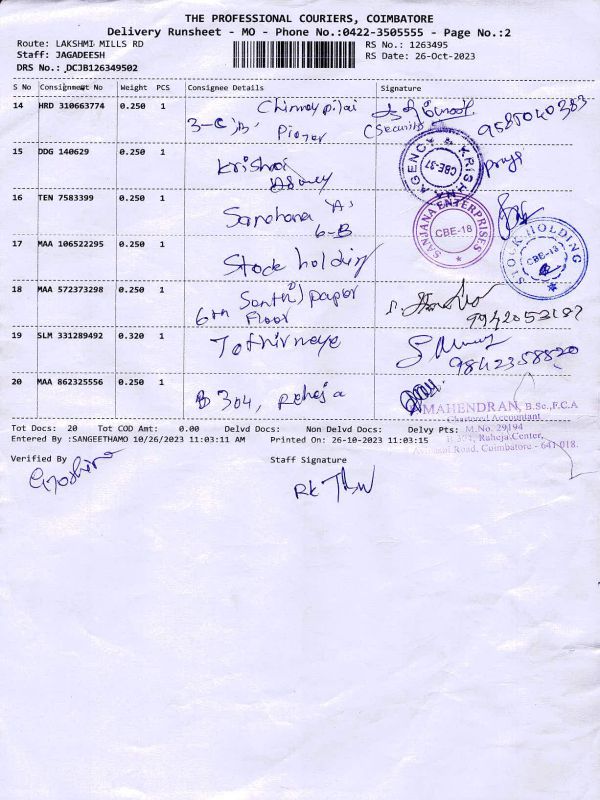 THE PROFESSIONAL COURIERS, COIMBATORE
Delivery Runsheet - MO - Phone No.:0422-3505555 - Page No.:2
Route: LAKSHMI MILLS RD
RS No.: 1263495
Staff: JAGADEESH
RS Date: 26-Oct-2023
DRS No.: DCJB126349502
S No Consignment No Weight PCS Consignee Details Signature
14 HRD 310663774 0.250 1
3-C 'B'
(Security)
9585040383
15 DDG 140629 0.250 1
AGENCY KRISHNA CBE-37
16 TEN 7583399 0.250 1
'A'
6-B
SANJANA ENTERPRISES CBE-18
17 MAA 106522295 0.250 1 Stock holding
STOCK HOLDING CBE-18
18 MAA 572373298 0.250 1
6th Floor
9942053187
19 SLM 331289492 0.320 1
9842358820
20 MAA 862325556 0.250 1 B 304, Raheja
MAHENDRAN, B.Sc.,F.C.A
Chartered Accountant
M.No. 29194
B 304, Raheja Center,
Avinashi Road, Coimbatore - 641 018.
Tot Docs: 20 Tot COD Amt: 0.00 Delvd Docs: Non Delvd Docs: Delvy Pts:
Entered By :SANGEETHAMO 10/26/2023 11:03:11 AM Printed On: 26-10-2023 11:03:15
Verified By
Staff Signature